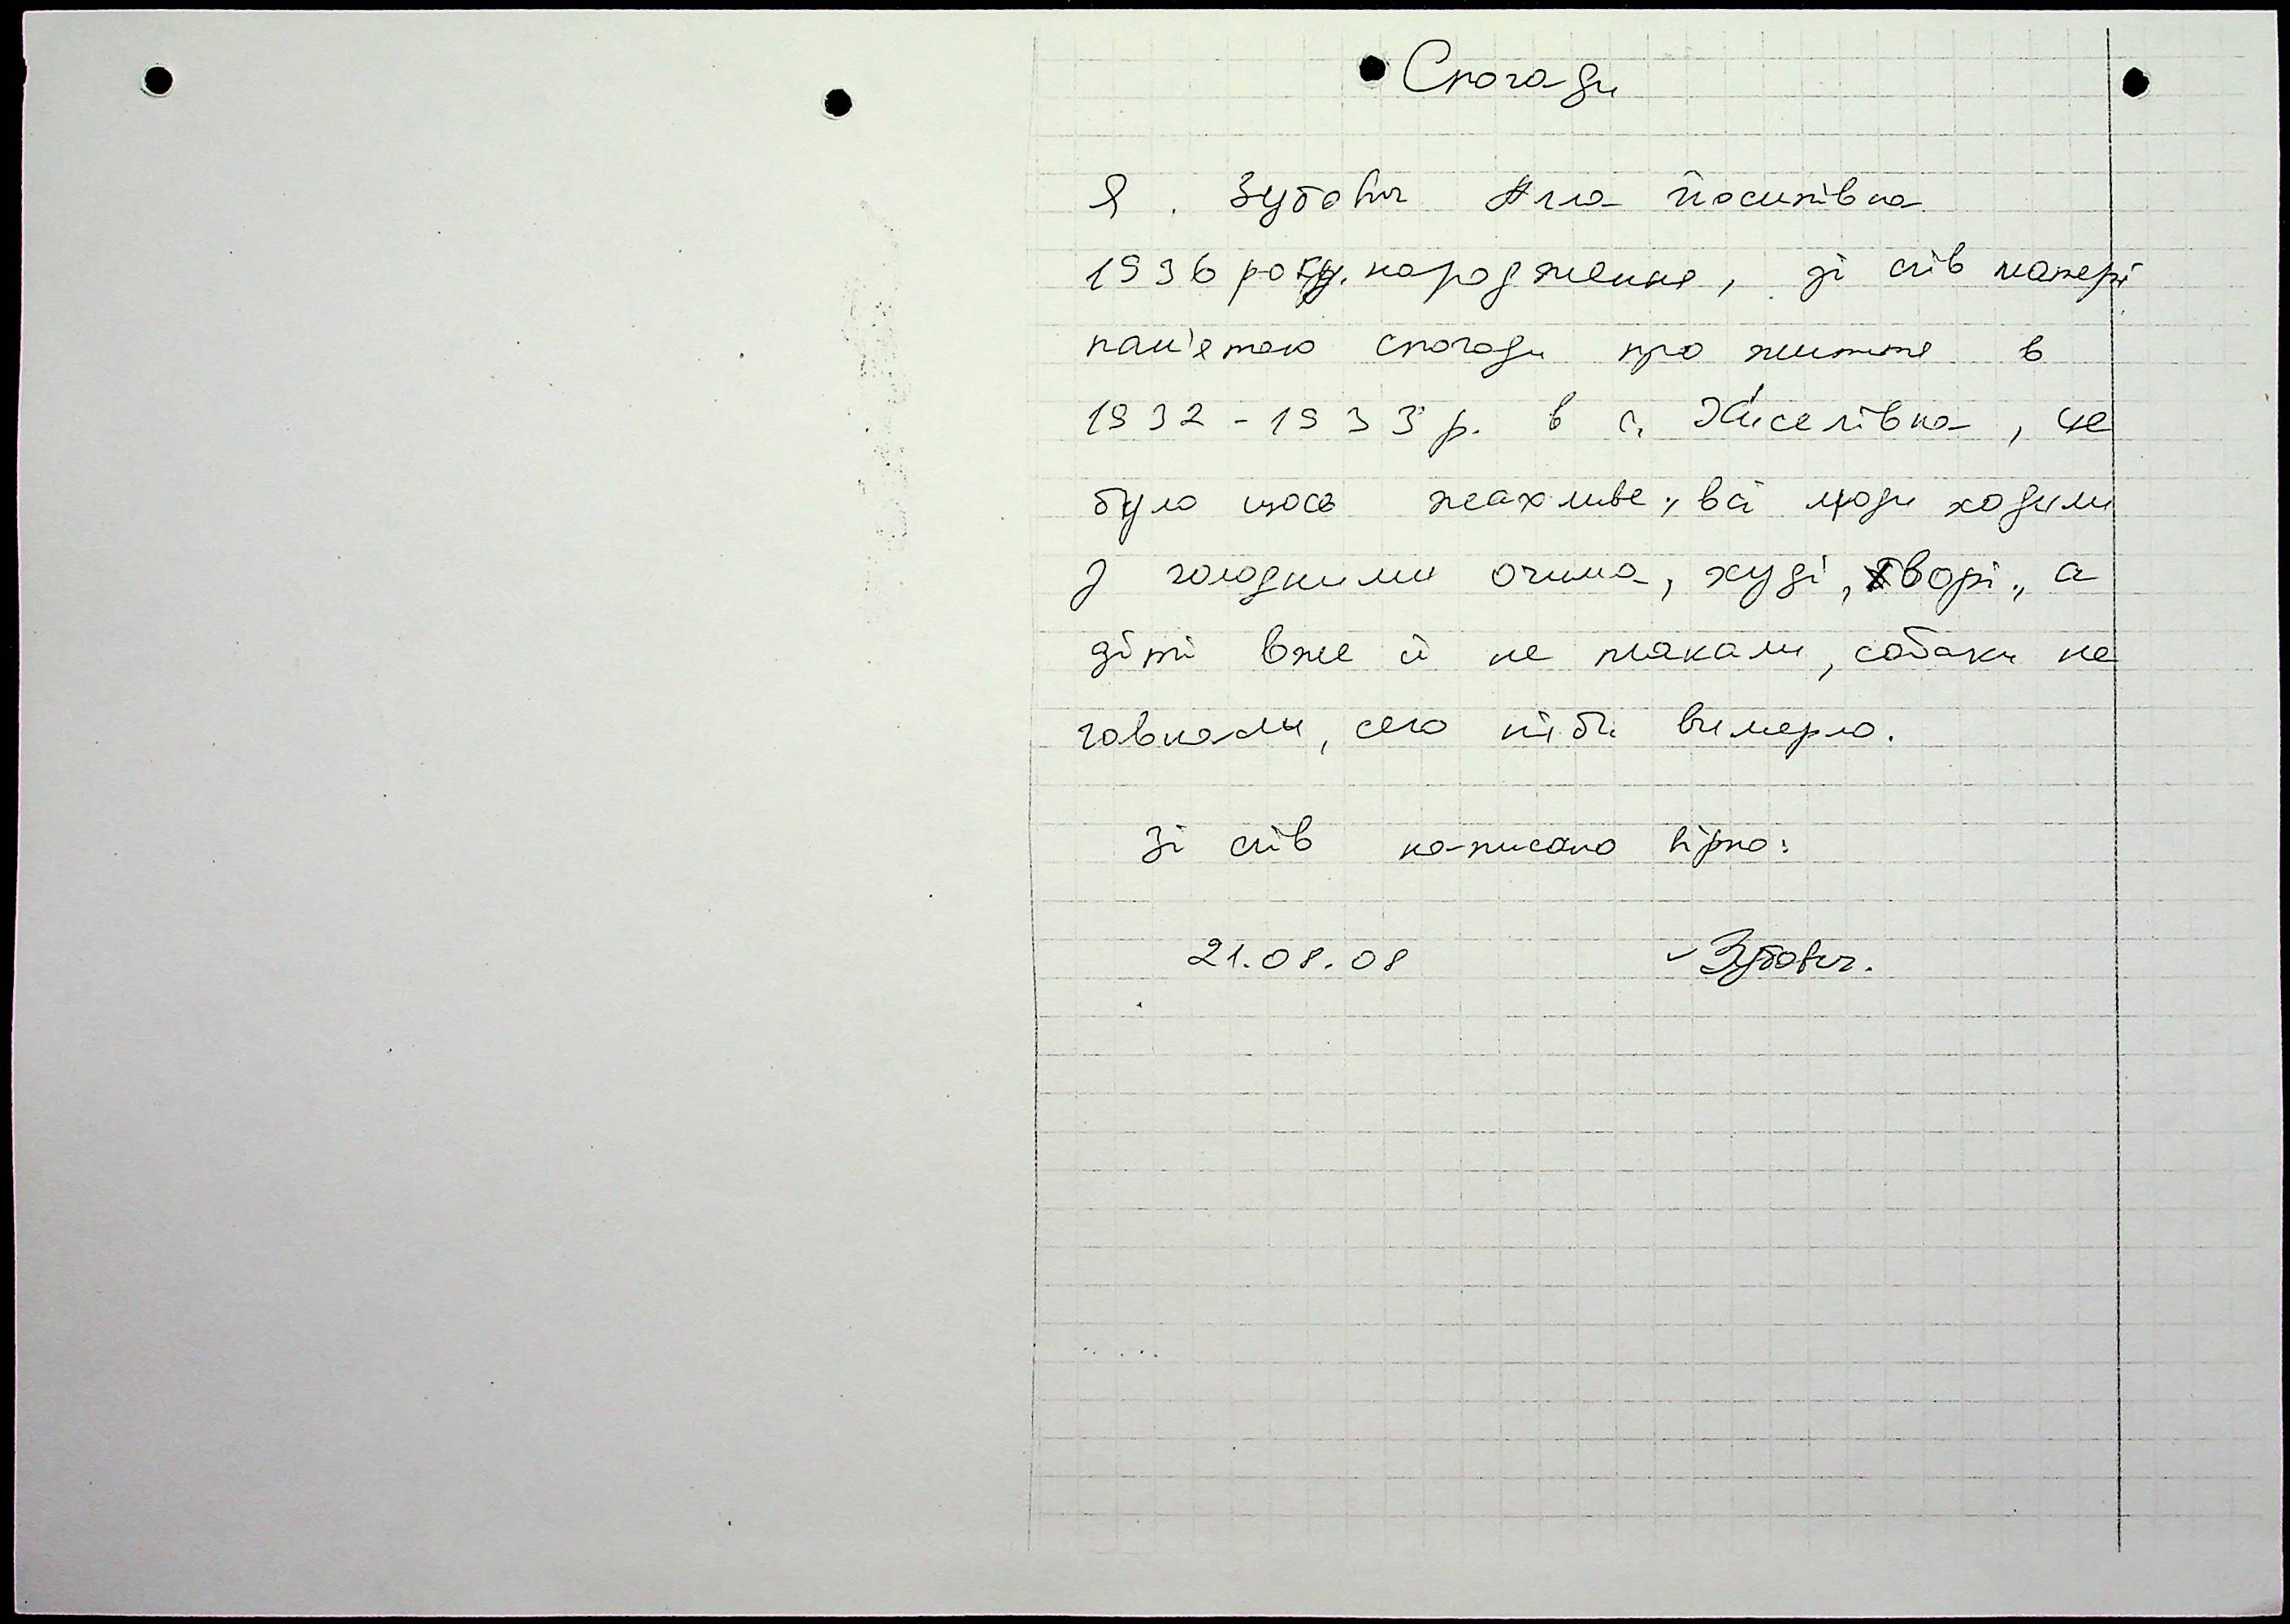 Спогади
Я. Зубович Алла Йосипівна
1936 року народження, зі слів матері
пам'ятаю спогади про життя в
1932-1933 р. в с. Киселівка, це
було щось жахливе, всі люди ходили
з голодними очима, худі, хворі, а
діти вже й не плакали, собаки не
гавкали, село ніби вимерло.
Зі слів написано вірно:
21.08.08 Зубович.